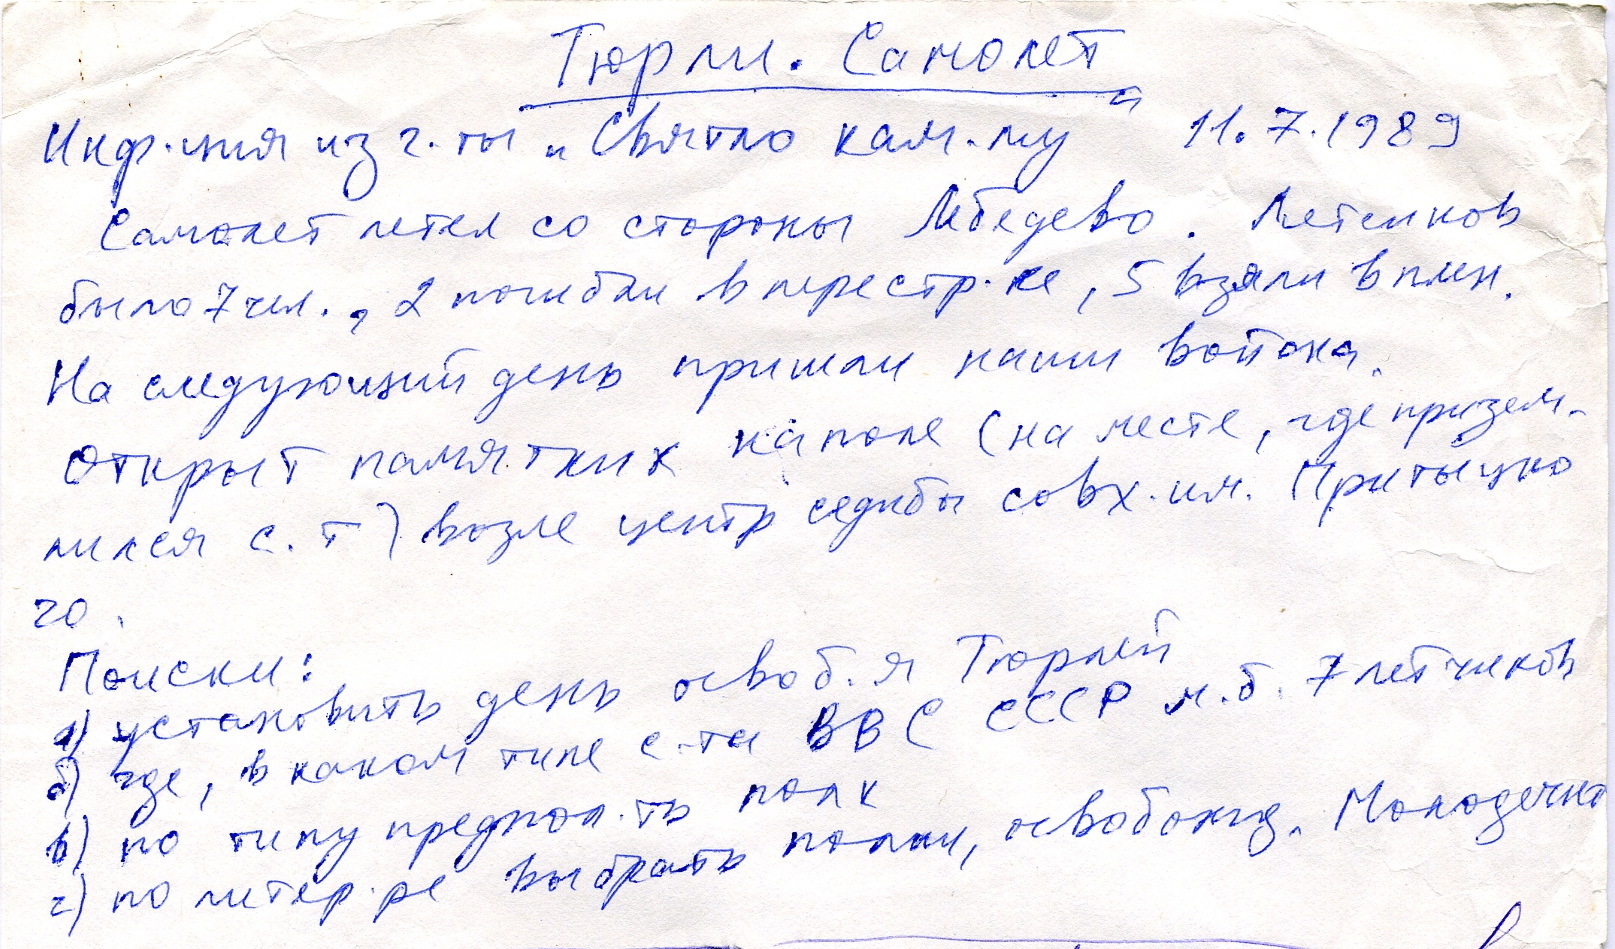 Тюрли. Самолет
Инф-ция из г-ты „Святло кам-му" 11.7.1989
Самолет летел со стороны Лебедево. Летчиков
было 7 чел., 2 погибли в перестр-ке, 5 взяли в плен.
На следующий день пришли наши войска.
Открыт памятник на поле (на месте, где призем-
лился с-т) возле центр седибы совх. им. Притыцко
го.
Поиски:
а) установить день освоб-я Тюрлей
б) где, в каком типе с-та ВВС СССР м.б. 7 летчиков
в) по типу предпол-ть полк
г) по литер-ре выбрать полки, освобожд. Молодечно